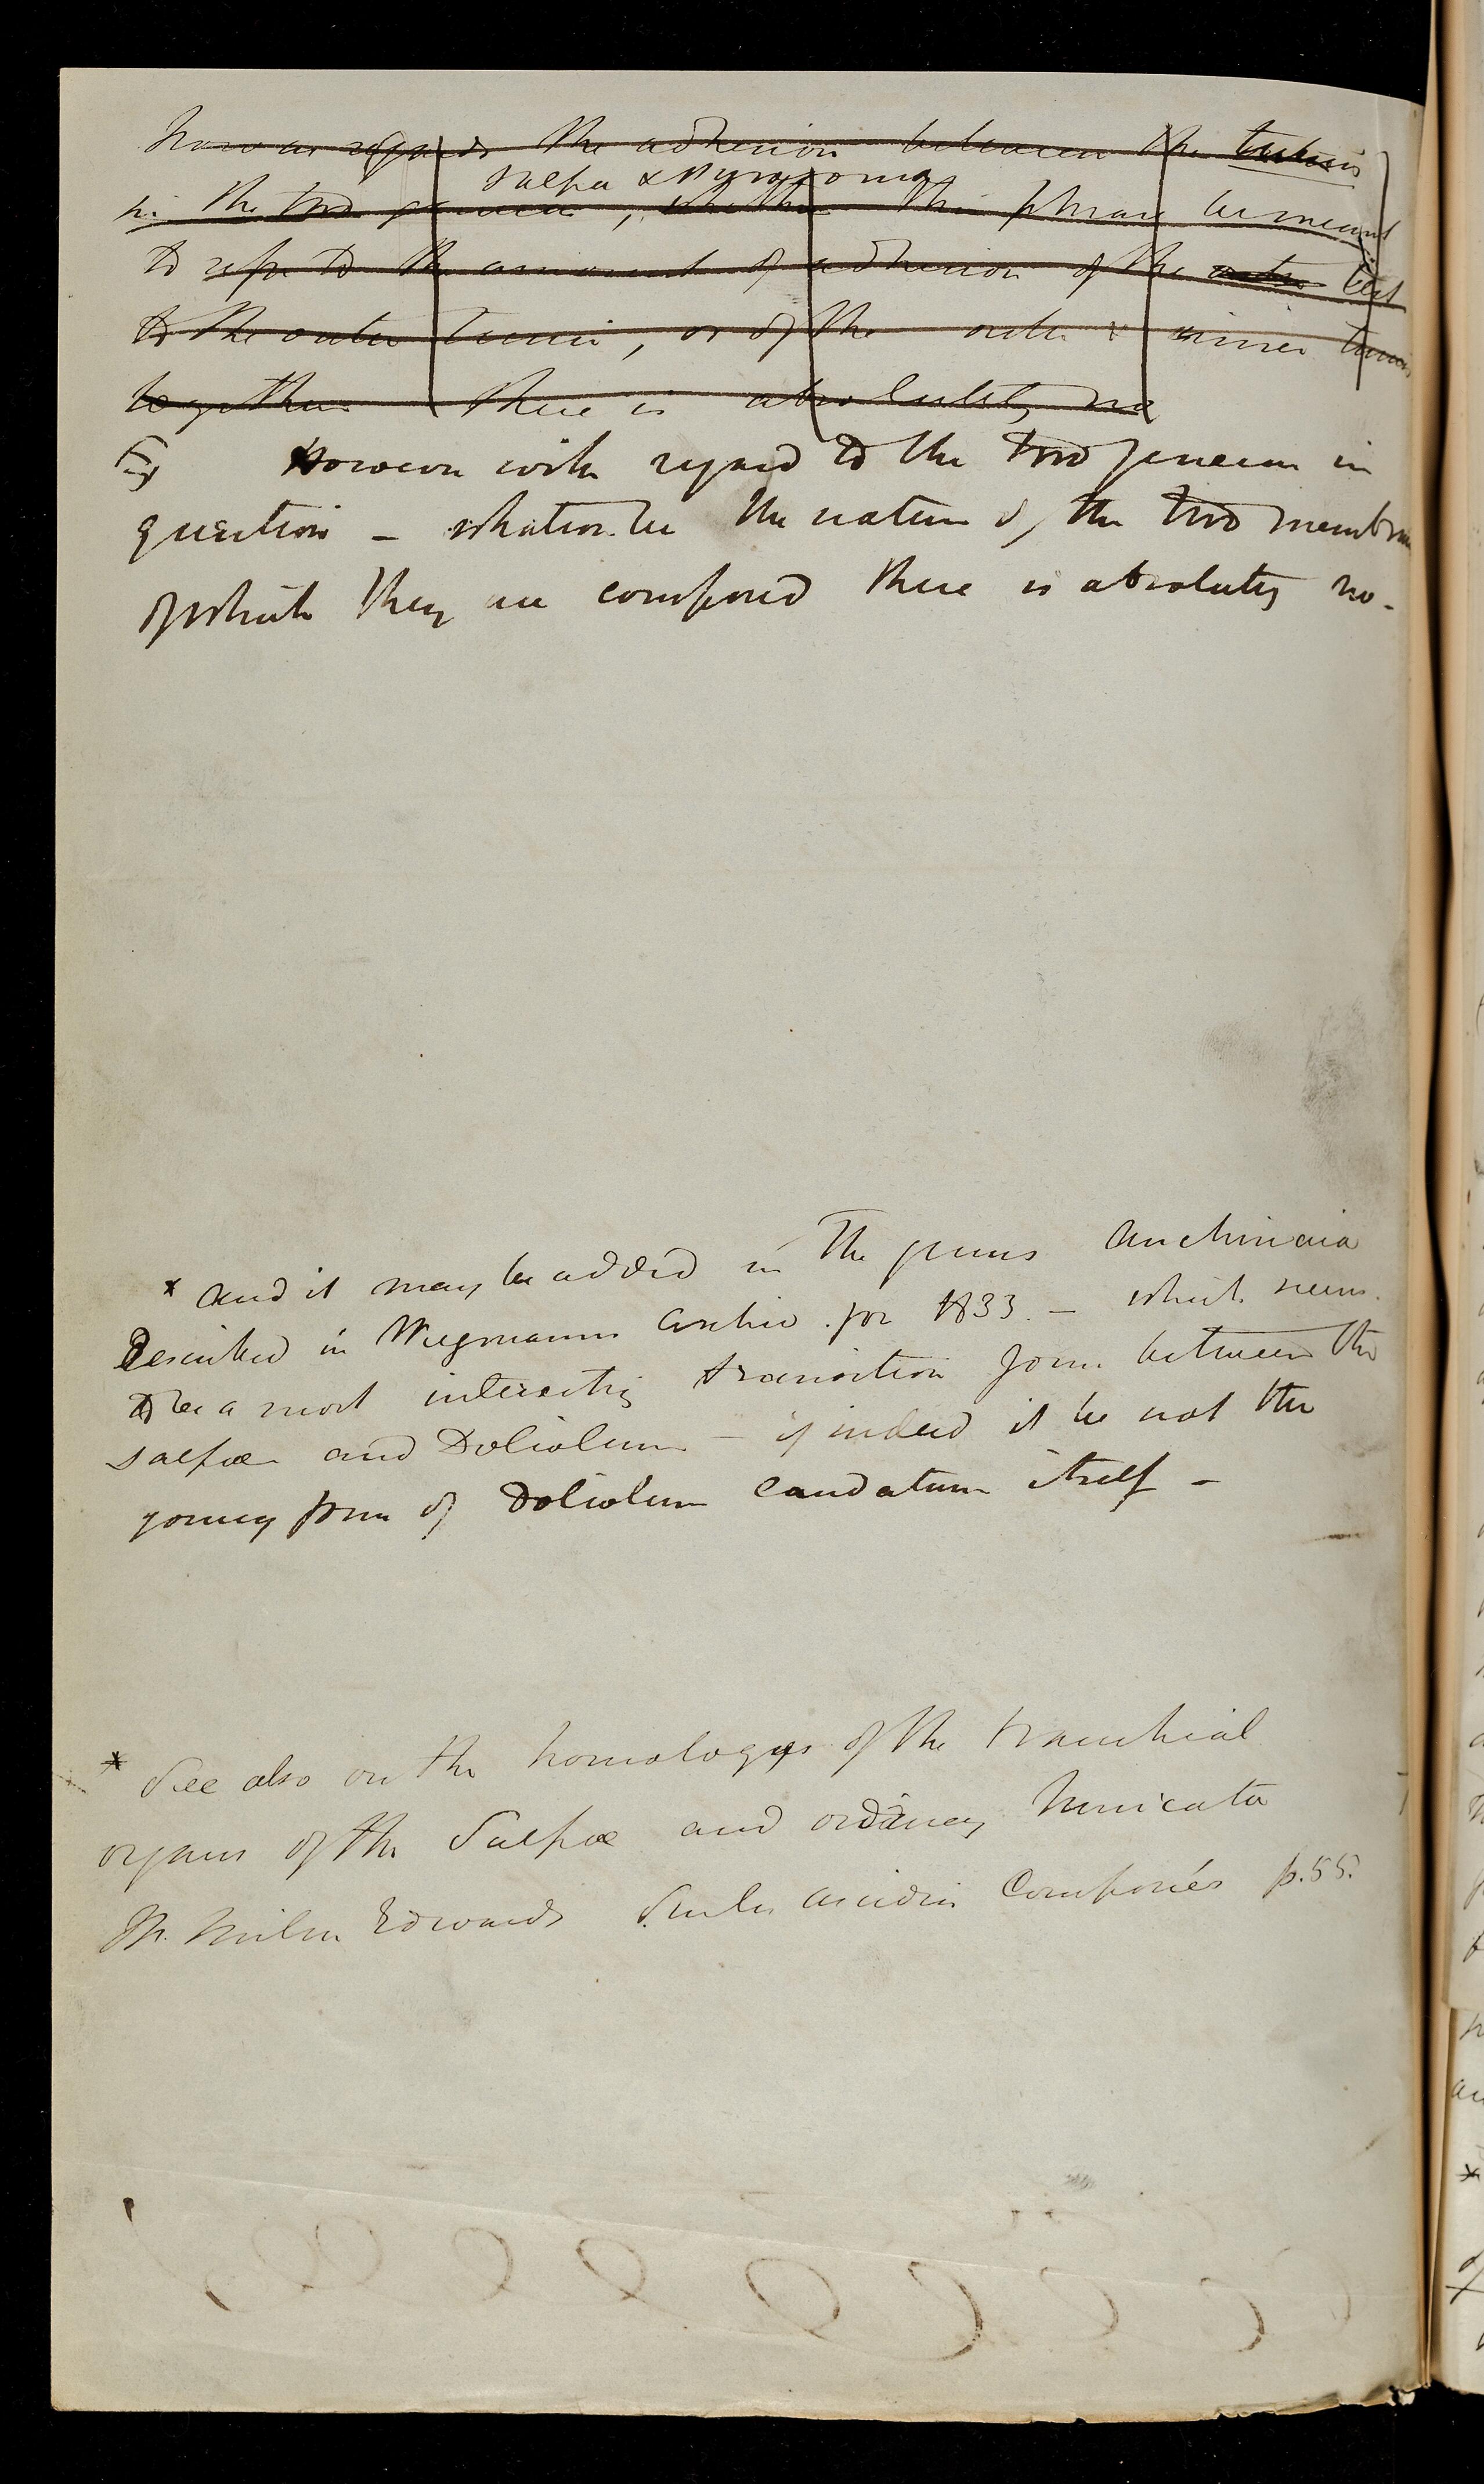 Now as regards the adhesion between the tunics
Salpa & Pyrosoma
in the two genera, whether this phrase be meant
to refer to the amount of adhesion of the outer test
to the outer tunic, or of the outer & inner tunics
together there is absolutely no
However with regard to the two genera in
question – whatever be the nature of the two membranes
of which they are composed there is absolutely no-
* and it may be added in the genus Anchinaia
described in Wiegmanns Archiv. for 1833. – which seems
to be a most interesting transition form between the
Salpæ and Doliolum – if indeed it be not the
young form of Doliolum caudatum itself –
* See also on the homologys of the branchial
organs of the Salpæ and ordinary Tunicata
M. Milne Edwards Sur les Ascidies Composées p. 55.